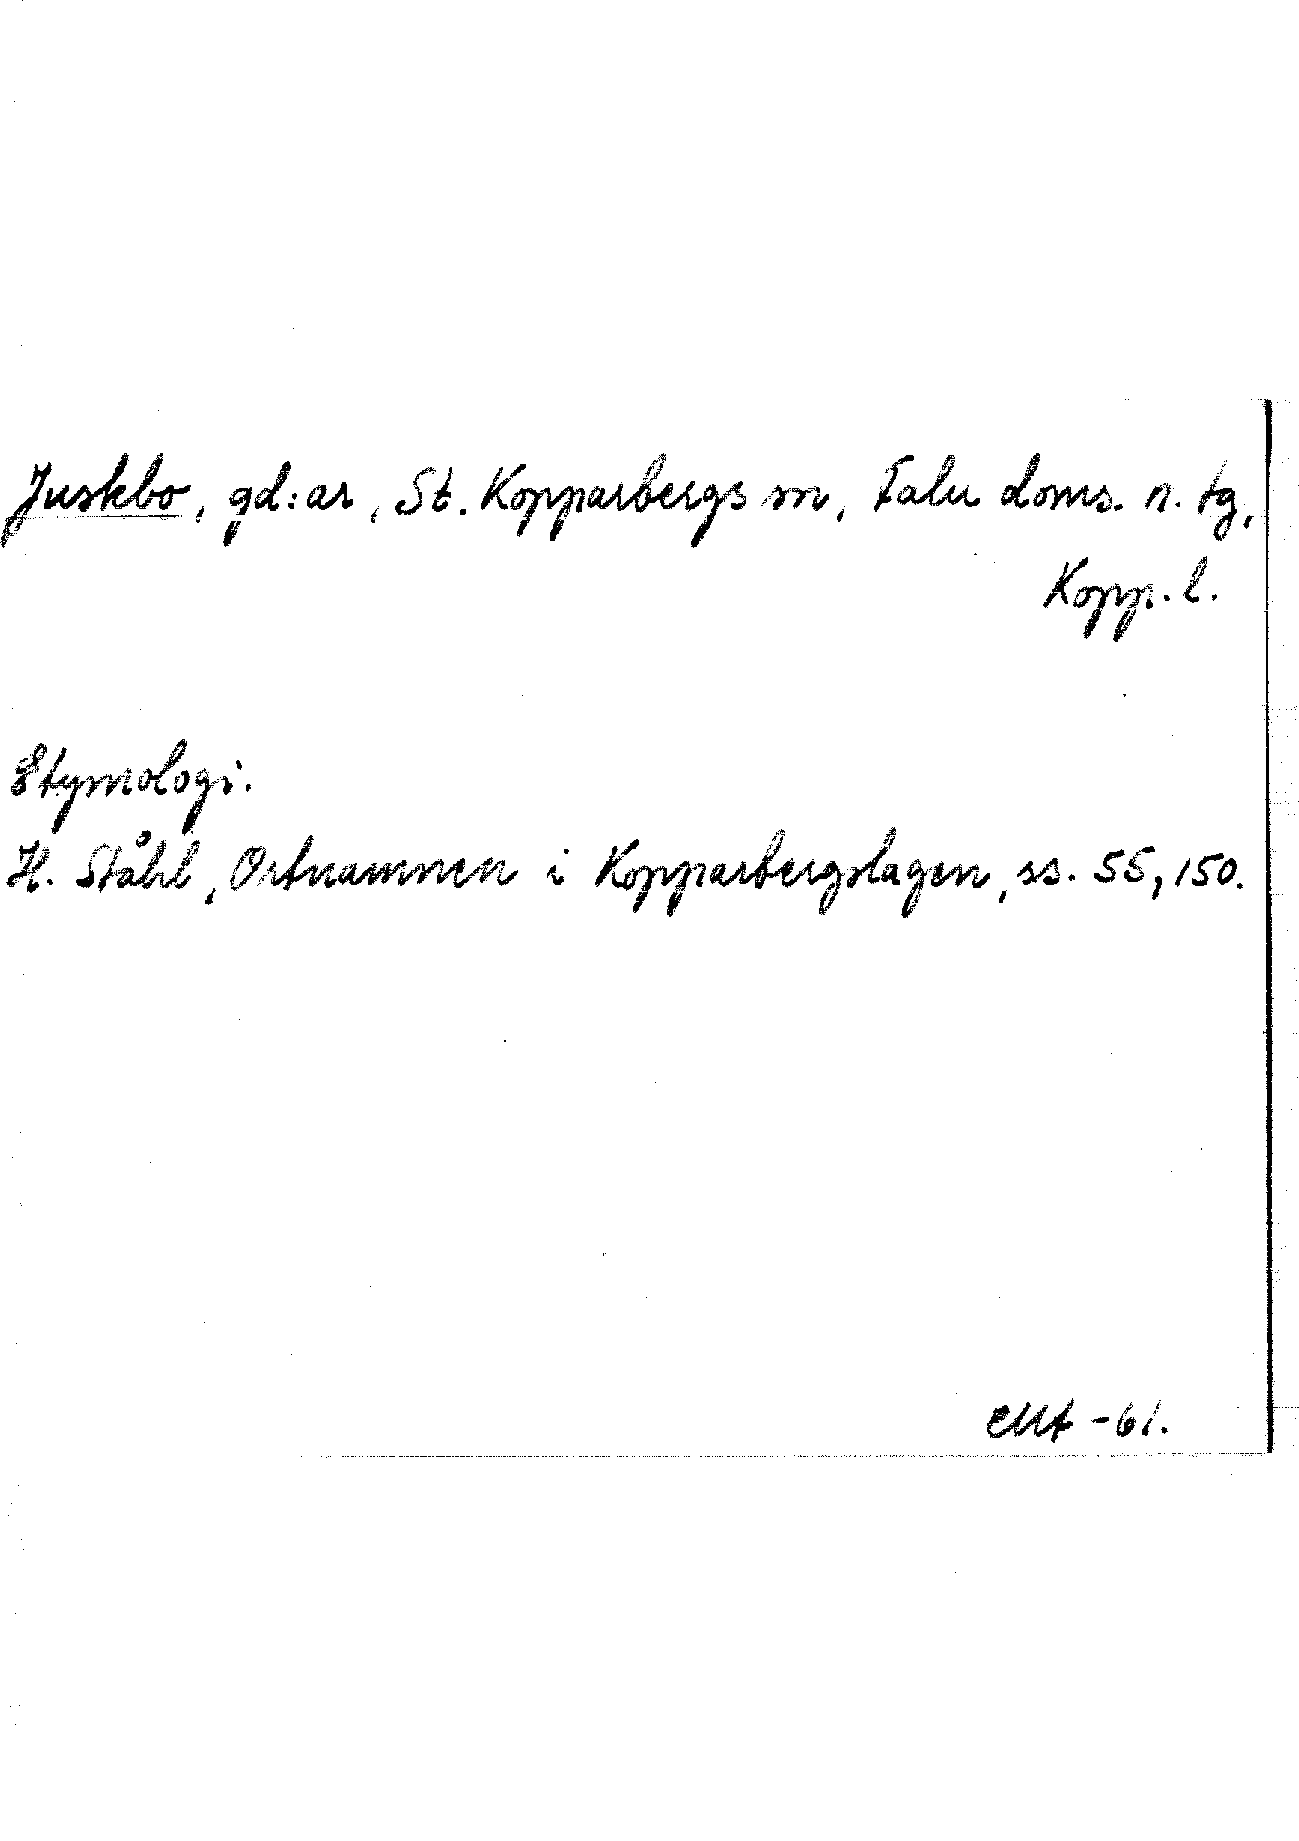 Juskbo, gd:ar, St. Kopparbergs sn, Falu doms. n. tg,
Kopp. l.
Etymologi.
H. Ståhl, Ortnamnen i Kopparbergslagen, ss. 55, 150.
-61.